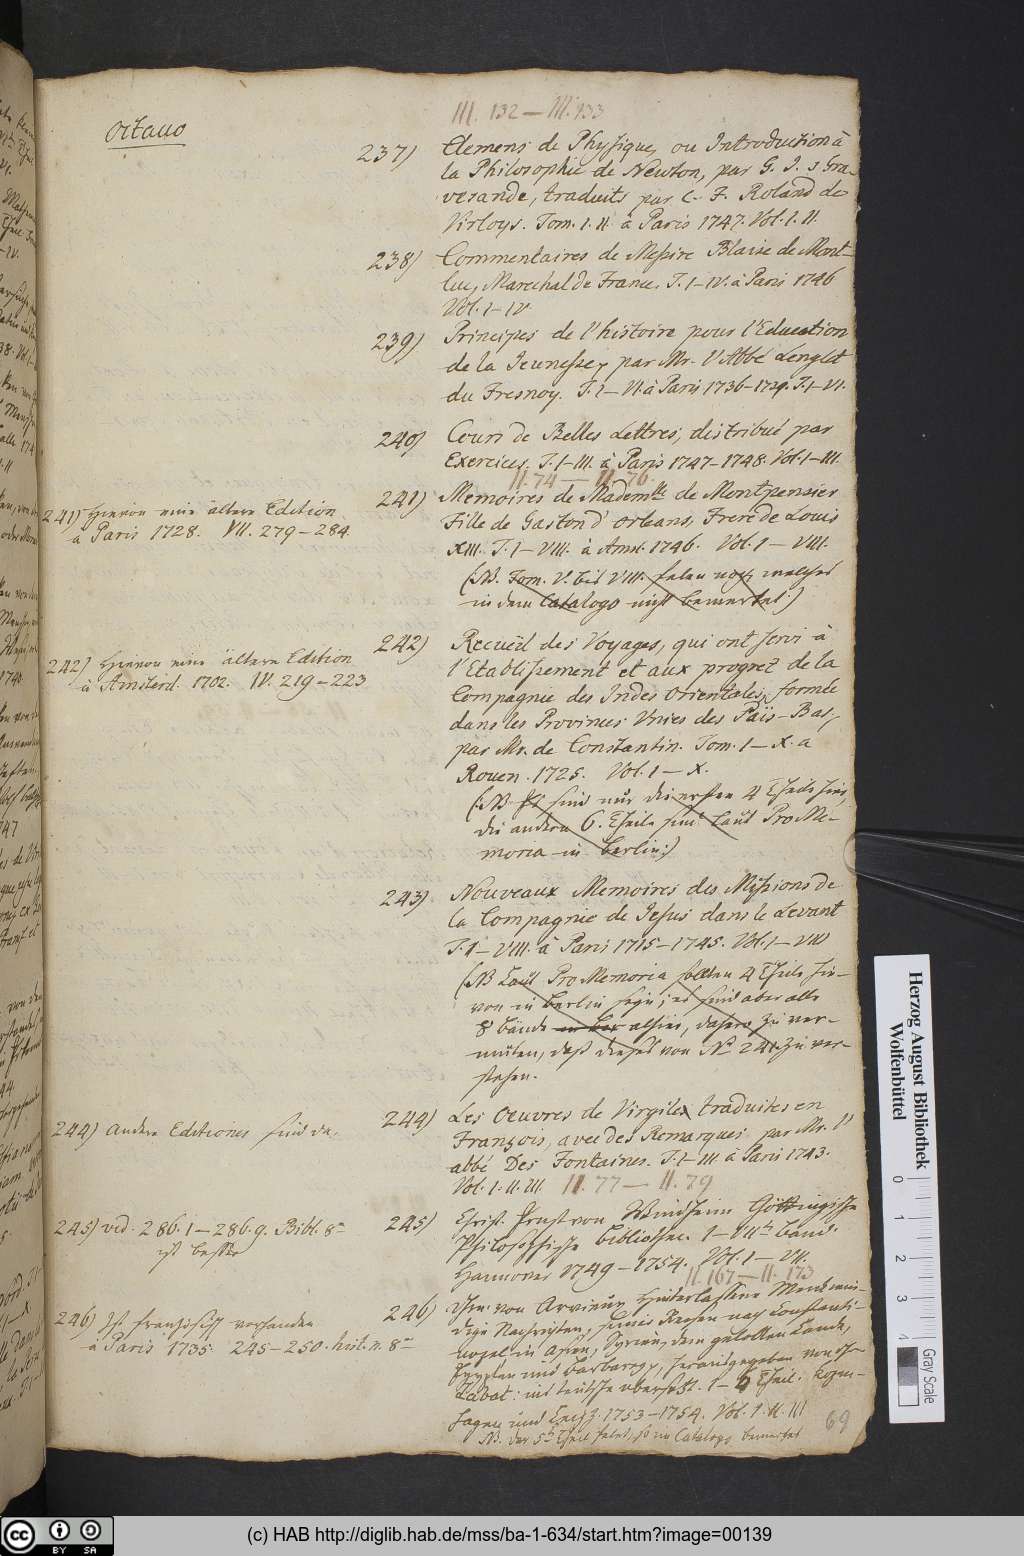 octavo
III. 132 — III. 133
237) Elemens de Physique, ou Introduction à
la Philosophie de Newton, par G. J. s Gra-
vesande, traduits par C. F. Roland de
Virloys. Tom. I. II. à Paris 1747. Vol. I. II.
238) Commentaires de Messire Blaise de Mont-
luc, Marechal de France. T. I–IV. à Paris 1746
Vol. I–IV
239) Principes de l'histoire pour l'Education
de la Jeunesse, par Mr. l'Abbé Lenglet
du Fresnoy. T. I–VI. à Paris 1736–1729. T. I–VI.
240) Cours de Belles Lettres, distribué par
Exercices. T. I–III. à Paris 1747–1748. Vol. I–III.
II. 74 — II. 76.
241) Memoires de Mademlle de Montpensier
Fille de Gaston d'Orleans, Frere de Louis
XIII. T. I–VIII. à Amst. 1746. Vol. I — VIII.
(NB. Tom. V. bis VIII. felen noch, welches
in dem Catalogo nicht bemerket.)
241) Hievon eine ältere Edition
à Paris 1728. VII. 279–284.
242) Recueil des Voyages, qui ont servi à
l'Etablissement et aux progrez de la
Compagnie des Indes Orientales, formée
dans les Provinces Unies des Païs-Bas,
par Mr. de Constantin. Tom. I — X. a
Rouen. 1725. Vol. I — X.
(NB. Es sind nur die ersten 4 Theile hier,
die andern 6. Theile sind laut Pro Me-
moria in Berlin.)
242) Hievon eine ältere Edition
à Amsterd. 1702. IV. 219–223
243) Nouveaux Memoires des Missions de
la Compagnie de Jesus dans le Levant
T. I–VIII. à Paris 1715–1745. Vol. I–VIII
(NB Laut Pro Memoria sollen 4 Theile hie-
von in Berlin seyn; es sind aber alle
8 bände in Ber alhier, dahero zu ver-
muten, daß dieses von No 241 zu ver-
stehen.
244) Les Oeuvres de Virgile, traduites en
François, avec des Remarques par Mr. l'
abbé Des Fontaines. T. I–III à Paris 1743.
Vol. I. II. III. II. 77 — II. 79
244) Andere Editiones sind da.
245) Christ. Ernst von Windheim Göttingische
Philosophische bibliothec. I–VIIte Band.
Hannover 1749–1754. Vol. I — VII.
II. 167 — II. 173
245) vid. 286. 1–286. 9. Bibl. 8–
ist besser
246) Hrn. von Arvieux Hinterlassene Merkwür-
dige Nachrichten, seiner Reisen nach Constanti-
nopel in Asien, Syrien, dem gelobten Lande,
Egypten und Barbarey, herausgegeben von
Labat: ins teutsche übersetzt. I – 6 Theil. Kopen-
hagen und Leipz. 1753–1754. Vol. I. II. III
NB. der 5te Theil fehlet, so im Catalogo bemerket
246) Ist französisch vorhanden
à Paris 1735. 245–250. hist. n. 8–
69
Herzog August Bibliothek
Wolfenbüttel
0 1 2 3 4
Gray Scale
cc BY SA
(c) HAB http://diglib.hab.de/mss/ba-1-634/start.htm?image=00139